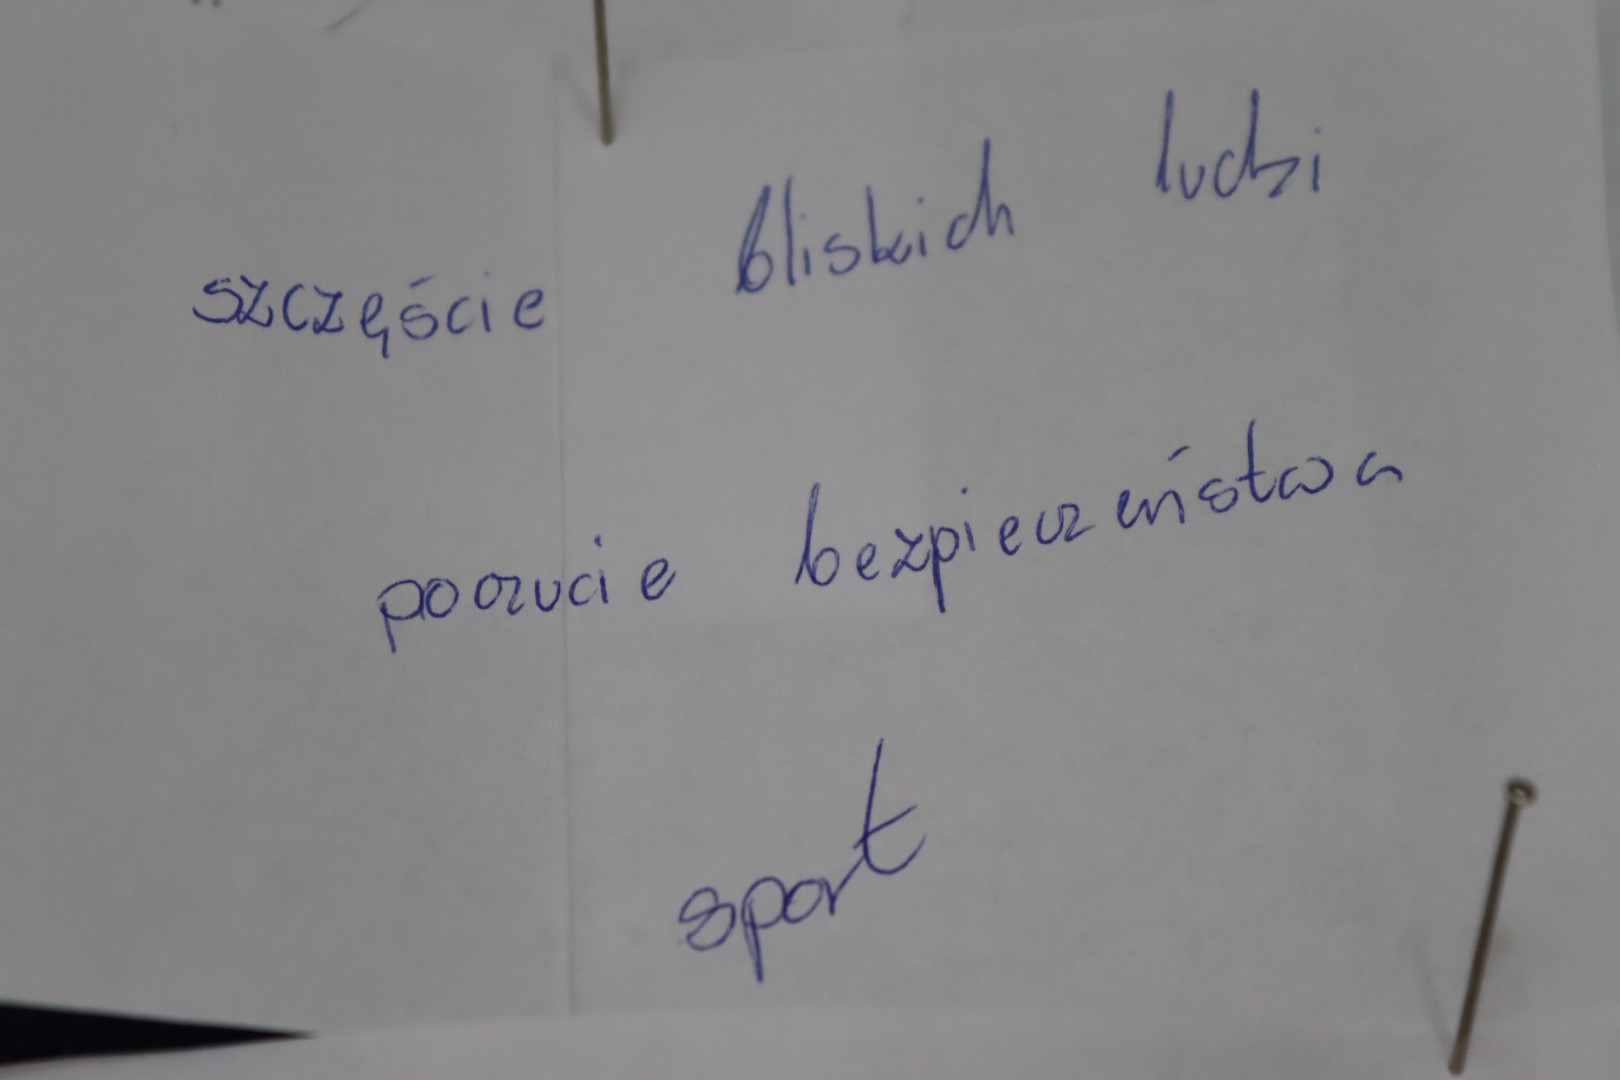 szczęście bliskich ludzi
poczucie bezpieczeństwa
sport